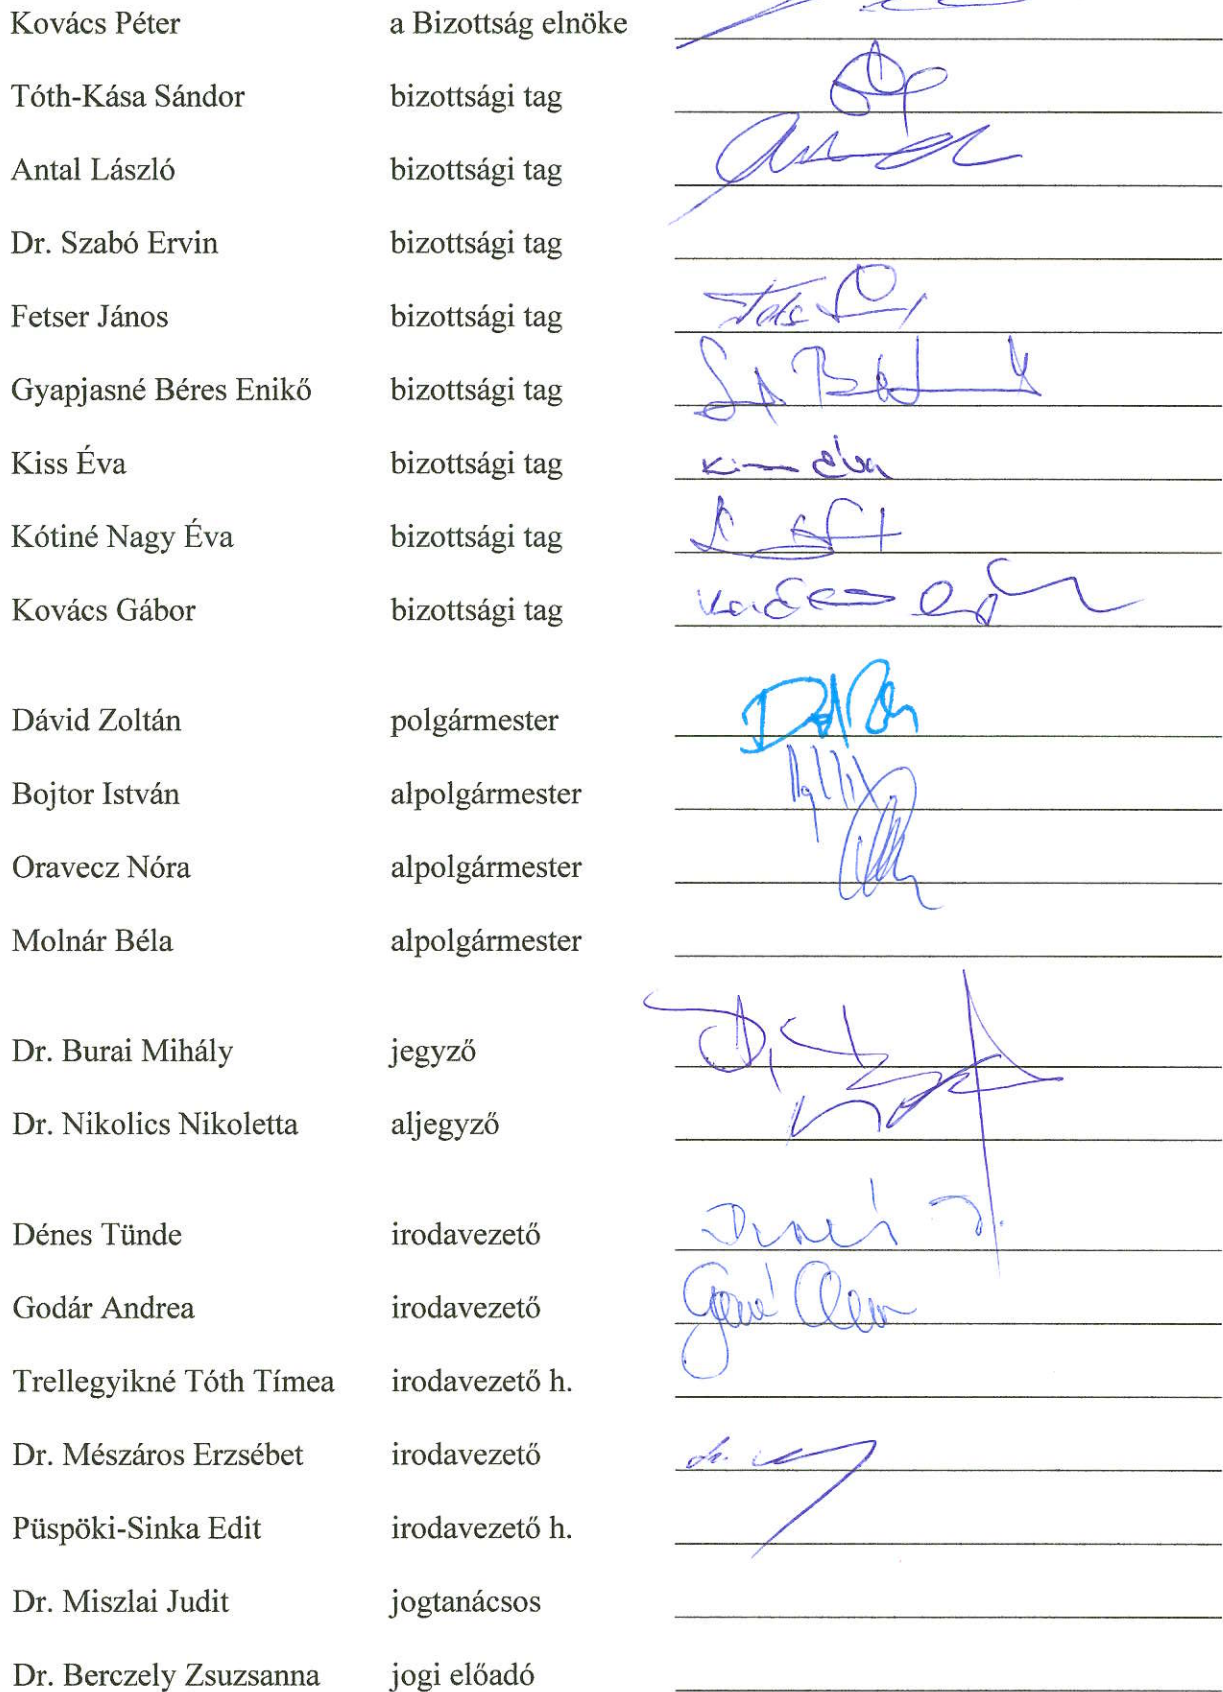 Kovács Péter a Bizottság elnöke
Tóth-Kása Sándor bizottsági tag
Antal László bizottsági tag
Dr. Szabó Ervin bizottsági tag
Fetser János bizottsági tag
Gyapjasné Béres Enikő bizottsági tag
Kiss Éva bizottsági tag
Kótiné Nagy Éva bizottsági tag
Kovács Gábor bizottsági tag
Dávid Zoltán polgármester
Bojtor István alpolgármester
Oravecz Nóra alpolgármester
Molnár Béla alpolgármester
Dr. Burai Mihály jegyző
Dr. Nikolics Nikoletta aljegyző
Dénes Tünde irodavezető
Godár Andrea irodavezető
Trellegyikné Tóth Tímea irodavezető h.
Dr. Mészáros Erzsébet irodavezető
Püspöki-Sinka Edit irodavezető h.
Dr. Miszlai Judit jogtanácsos
Dr. Berczely Zsuzsanna jogi előadó